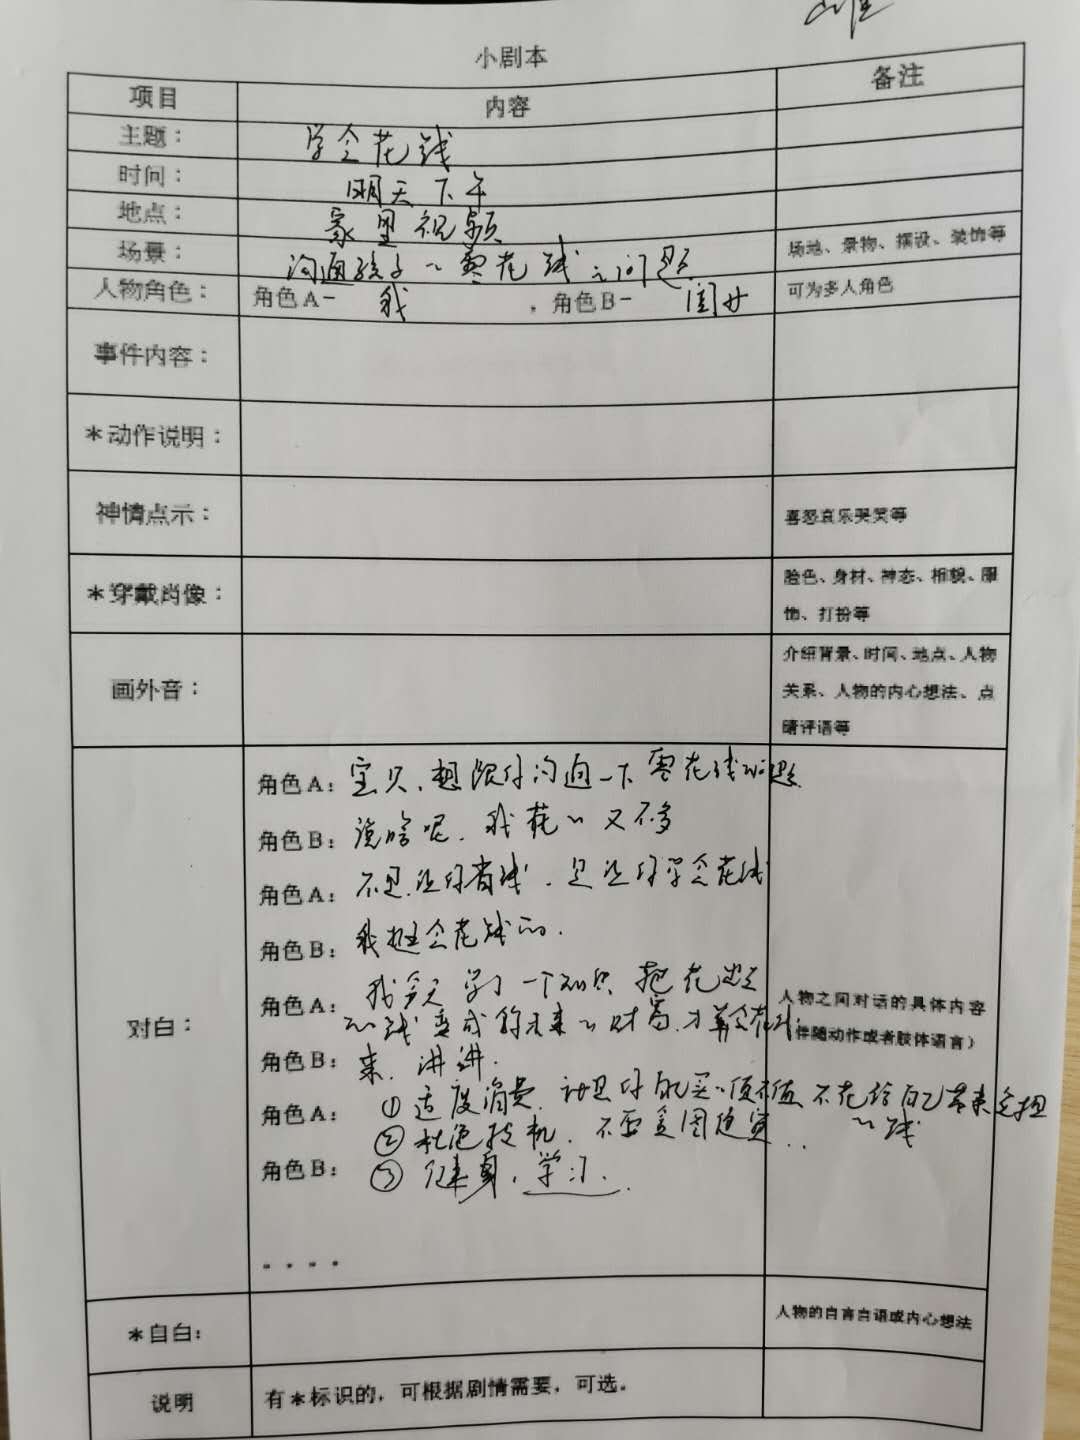 小剧本
项目 内容 备注
主题： 学会花钱
时间： 明天下午
地点： 家里视频
场景： 沟通孩子的零花钱之问题 场地、景物、摆设、装饰等
人物角色： 角色A- 我 ，角色B- 闺女 可为多人角色
事件内容：
*动作说明：
神情点示： 喜怒哀乐哭笑等
*穿戴肖像： 脸色、身材、神态、相貌、服
饰、打扮等
画外音： 介绍背景、时间、地点、人物
关系、人物的内心想法、点
睛评语等
对白：
角色A：宝贝，想跟你沟通一下零花钱的问题
角色B：说啥呢，我花的又不多
角色A：不是让你省钱，是让你学会花钱
角色B：我挺会花钱的.
角色A：我今天学了一个知识，把花出去
的钱变成你未来的财富，才算会花钱
人物之间对话的具体内容
（伴随动作或者肢体语言）
角色B：来，讲讲.
角色A：①适度消费， 买的值不值 不花给自己带来负担
的钱
②杜绝投机，不要贪图便宜..
角色B：③健身，学习.
....
*自白： 人物的自言自语或内心想法
说明 有*标识的，可根据剧情需要，可选。